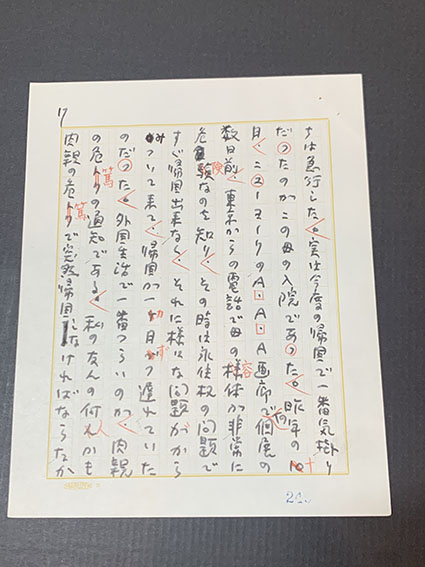 17
ちは急行した。実は今度の帰国で一番気掛り
だったのがこの母の入院であった。昨年の10十
月、ニューヨークのA・A・A画廊での個展の
数日前、東京からの電話で母の様容体が非常に
危険険なのを知り、その時は永住権の問題で
すぐ帰国出来なく、それに様々な問題がから
みついて来て、帰国が一カ月ずつ遅れていた
のだった。外国生活で一番つらいのが、肉親
の危トク篤の通知である。私の友人の何人かも
肉親の危トク篤で突然帰国しなければならなか
24.